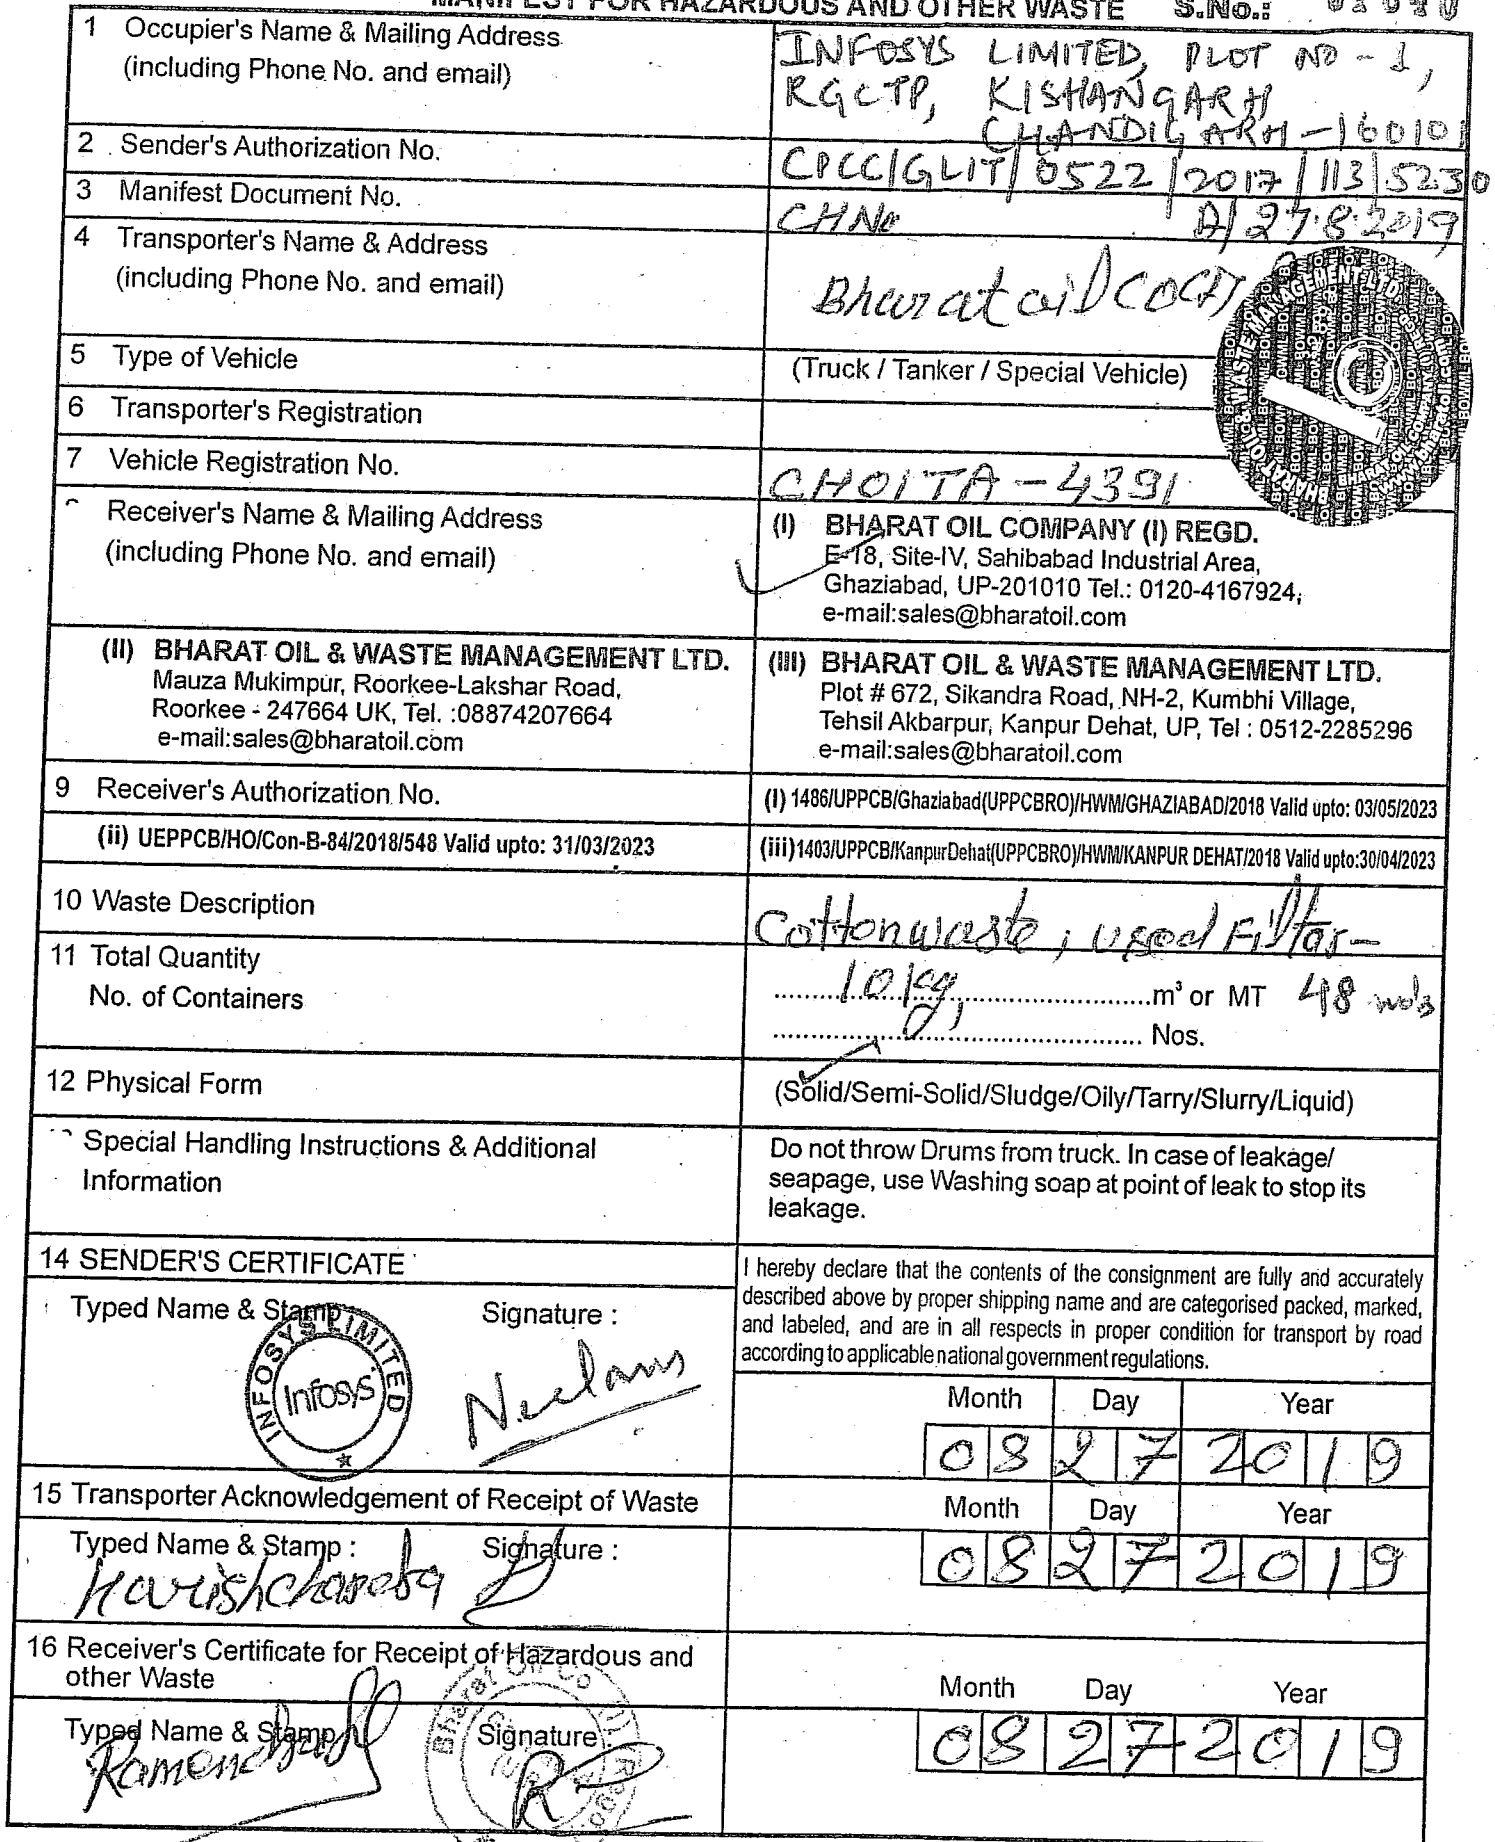 MANIFEST FOR HAZARDOUS AND OTHER WASTE S.No.:
1 Occupier's Name & Mailing Address
(including Phone No. and email)
INFOSYS LIMITED, PLOT NO - 1,
RGCTP, KISHANGARH
CHANDIGARH - 160101
2 Sender's Authorization No.
CPCC/GLIT/0522/2017/113/5230
3 Manifest Document No.
CHNo D/27.8.2019
4 Transporter's Name & Address
(including Phone No. and email)
Bharat oil CO
5 Type of Vehicle
(Truck / Tanker / Special Vehicle)
6 Transporter's Registration
7 Vehicle Registration No.
CH01TA-4391
Receiver's Name & Mailing Address
(including Phone No. and email)
(I) BHARAT OIL COMPANY (I) REGD.
E-18, Site-IV, Sahibabad Industrial Area,
Ghaziabad, UP-201010 Tel.: 0120-4167924,
e-mail:sales@bharatoil.com
(II) BHARAT OIL & WASTE MANAGEMENT LTD.
Mauza Mukimpur, Roorkee-Lakshar Road,
Roorkee - 247664 UK, Tel. :08874207664
e-mail:sales@bharatoil.com
(III) BHARAT OIL & WASTE MANAGEMENT LTD.
Plot # 672, Sikandra Road, NH-2, Kumbhi Village,
Tehsil Akbarpur, Kanpur Dehat, UP, Tel : 0512-2285296
e-mail:sales@bharatoil.com
9 Receiver's Authorization No.
(I) 1486/UPPCB/Ghaziabad(UPPCBRO)/HWM/GHAZIABAD/2018 Valid upto: 03/05/2023
(ii) UEPPCB/HO/Con-B-84/2018/548 Valid upto: 31/03/2023
(iii)1403/UPPCB/KanpurDehat(UPPCBRO)/HWM/KANPUR DEHAT/2018 Valid upto:30/04/2023
10 Waste Description
Cottonwaste, used Filtar-
11 Total Quantity
No. of Containers
10 kg, m³ or MT 48 no's
Nos.
12 Physical Form
(Solid/Semi-Solid/Sludge/Oily/Tarry/Slurry/Liquid)
Special Handling Instructions & Additional
Information
Do not throw Drums from truck. In case of leakage/
seapage, use Washing soap at point of leak to stop its
leakage.
14 SENDER'S CERTIFICATE
I hereby declare that the contents of the consignment are fully and accurately
described above by proper shipping name and are categorised packed, marked,
and labeled, and are in all respects in proper condition for transport by road
according to applicable national government regulations.
Typed Name & Stamp Signature :
INFOSYS LIMITED
Infosys
Month Day Year
08 27 2019
15 Transporter Acknowledgement of Receipt of Waste
Month Day Year
Typed Name & Stamp : Signature :
Harishchandra
08 27 2019
16 Receiver's Certificate for Receipt of Hazardous and
other Waste
Month Day Year
Typed Name & Stamp Signature :
08 27 2019